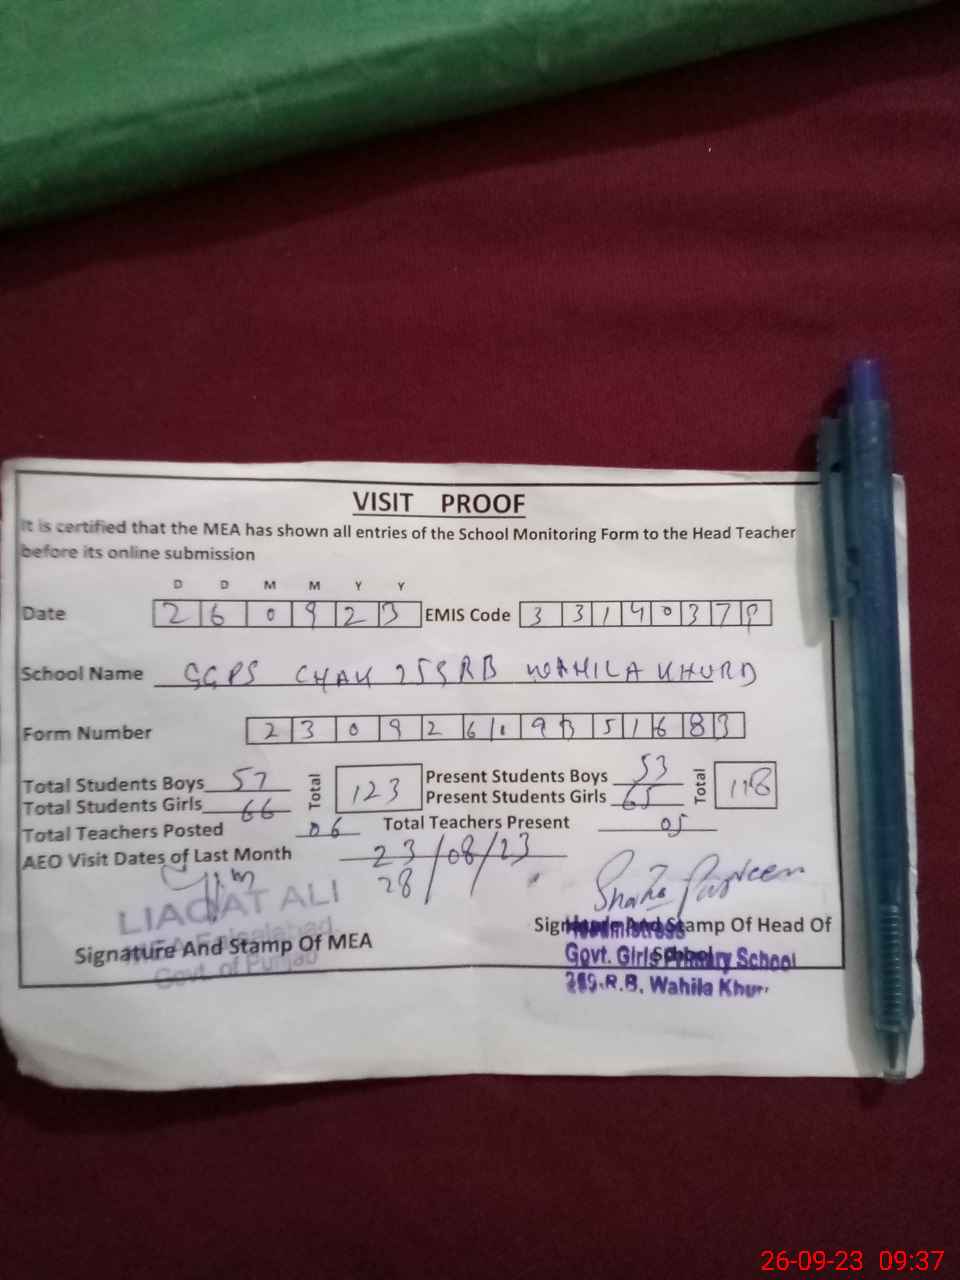 VISIT PROOF
It is certified that the MEA has shown all entries of the School Monitoring Form to the Head Teacher
before its online submission
D D M M Y Y
Date 2 6 0 9 2 3 EMIS Code 3 3 1 4 0 3 7
School Name GGPS CHAK RB WAHILA KHURD
Form Number 2 3 0 9 2 6 1 9 3 5 1 6 8 3
Total Students Boys 57 Total 123 Present Students Boys 53 Total 118
Total Students Girls 66 Present Students Girls 65
Total Teachers Posted 06 Total Teachers Present 05
AEO Visit Dates of Last Month 23/08/23
28
LIAQAT ALI
Shazia Parveen
Signature And Stamp Of MEA
MEA Faisalabad
Govt. of Punjab
Signature And Stamp Of Head Of
School
Headmistress
Govt. Girls Primary School
R.B. Wahila Khurd
26-09-23 09:37